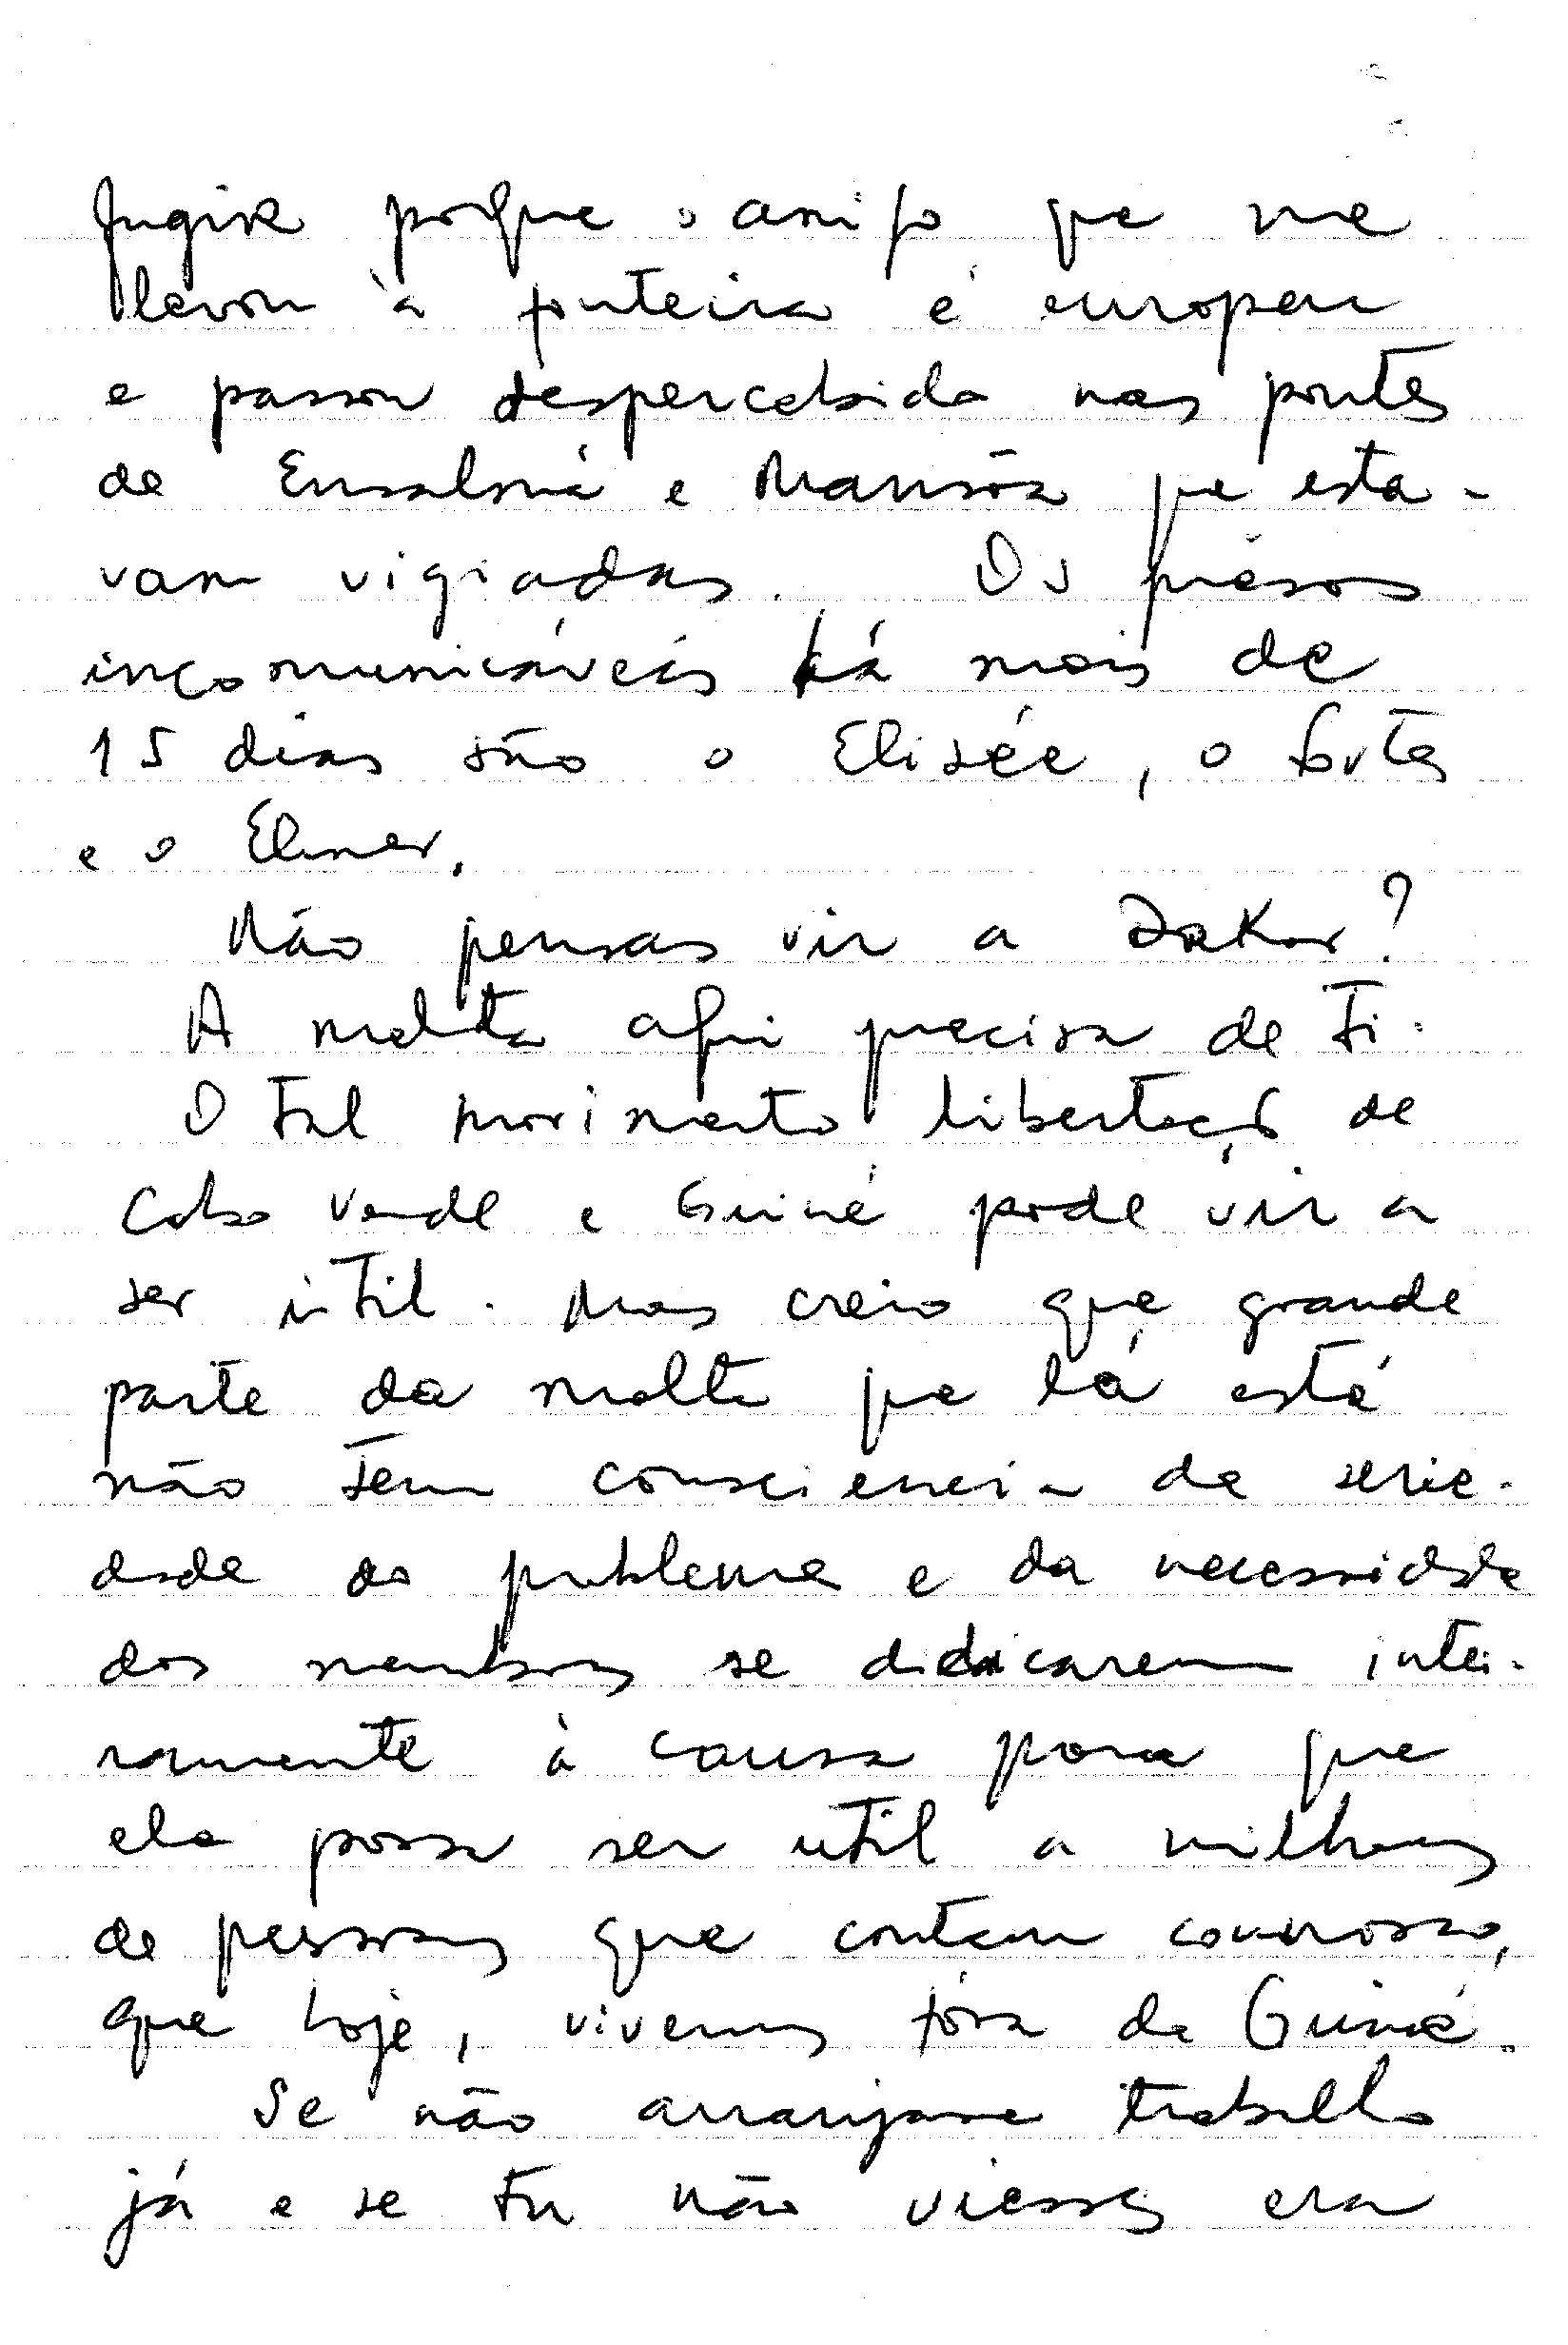 fugir porque o amigo que me
levou à fronteira é europeu
e passou despercebido nas pontes
de Ensalmá e Mansôa que esta-
vam vigiadas. Os prêsos
incomunicáveis há mais de
15 dias são o Elisée, o Fortes
e o Elmer.
Não pensas vir a Dakar?
A malta aqui precisa de ti.
O tal movimento libertação de
Cabo Verde e Guiné pode vir a
ser útil. Mas creio que grande
parte da malta que lá está
não tem consciencia da serie-
dade do problema e da necessidade
dos membros se dedicarem intei-
ramente à causa para que
ela possa ser util a milhares
de pessoas que contam connosco,
que hoje, vivemos fóra da Guiné.
Se não arranjasse trabalho
já e se tu não viesses era